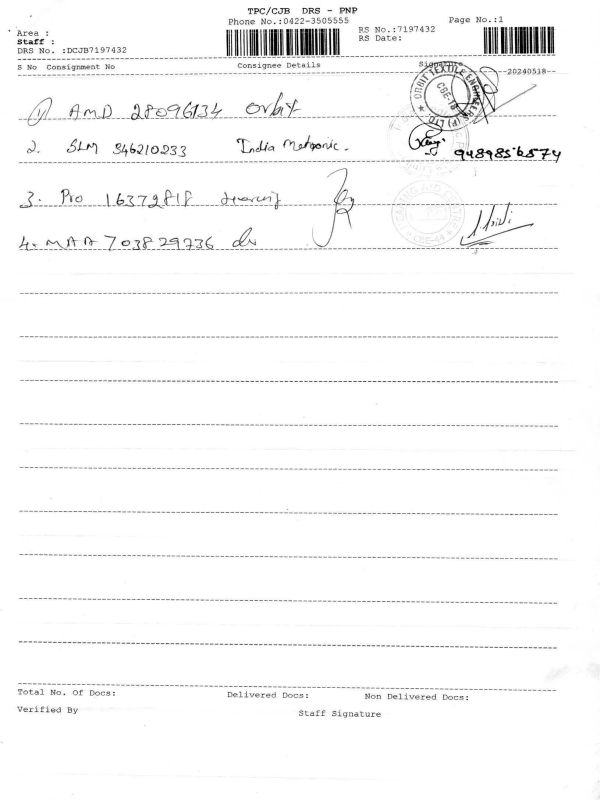 TPC/CJB DRS - PNP
Phone No.:0422-3505555
Page No.:1
Area :
Staff :
DRS No. :DCJB7197432
RS No.:7197432
RS Date:
S No Consignment No Consignee Details Signature --20240518--
ORBIT TEXTILE ENGINEERS (P) LTD. CBE-18
1) AMD 28096134 Orbit
2. SLM 346210233 India Metronic. 9489856574
3. Pro
4. MAA 703829736
Total No. Of Docs: Delivered Docs: Non Delivered Docs:
Verified By Staff Signature